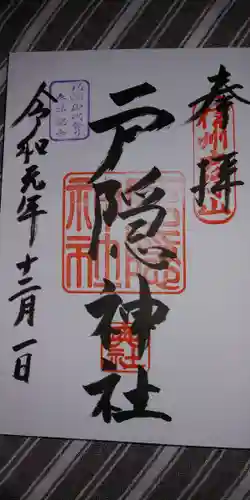 奉拝
信州戸隠山
戸隠神社
奥社
令和元年十二月一日